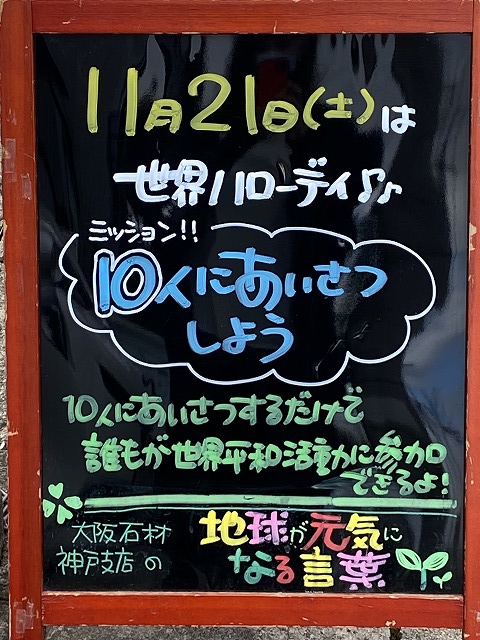 11月21日(土)は
世界ハローデイ♪♪
ミッション!!
10人にあいさつ
しよう
10人にあいさつするだけで
誰もが世界平和活動に参加
できるよ!
大阪石材
神戸支店の
地球が元気に
なる言葉